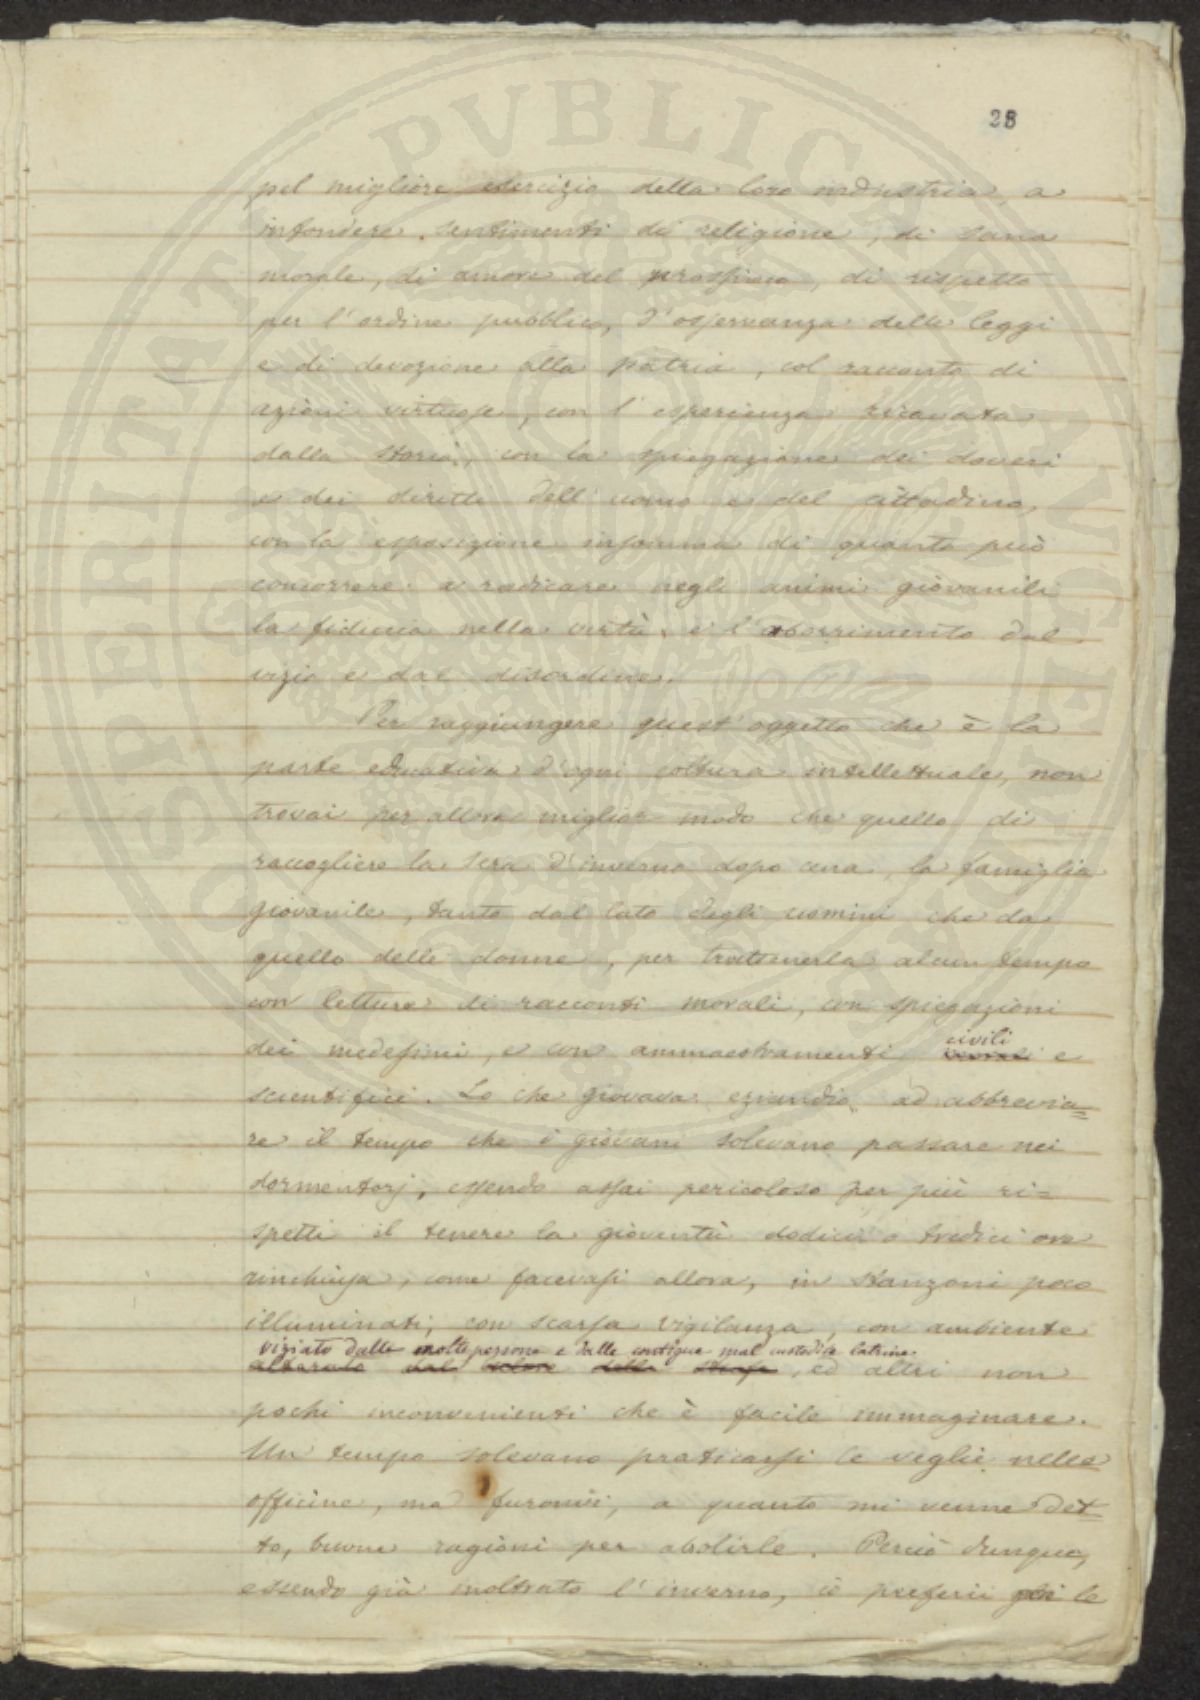 28
pel migliore esercizio della loro industria, a
infondere sentimenti di religione, di sana
morale, di amore del prossimo, di rispetto
per l'ordine pubblico, d'osservanza delle leggi
e di devozione alla patria, col racconto di
azioni virtuose, con l'esperienza ricavata
dalla storia, con la spiegazione dei doveri
e dei diritti dell'uomo e del cittadino,
con la esposizione insomma di quanto può
concorrere a radicare negli animi giovanili
la fiducia nella virtù, e l'aborrimento dal
vizio e dal disordine.
Per raggiungere quest'oggetto che è la
parte educativa d'ogni coltura intellettuale, non
trovai per allora miglior modo che quello di
raccogliere la sera d'inverno dopo cena, la famiglia
giovanile, tanto dal lato degli uomini che da
quello delle donne, per trattenerla alcun tempo
con letture di racconti morali, con spiegazioni
civili
dei medesimi, e con ammaestramenti e
scientifici. Lo che giovava eziandio ad abbrevia=
re il tempo che i giovani solevano passare nei
dormentorj, essendo assai pericoloso per più ri=
spetti il tenere la gioventù dodici o tredici ore
rinchiusa, come facevasi allora, in stanzoni poco
illuminati, con scarsa vigilanza, con ambiente
viziato dalle molte persone e dalle contigue mal custodite latrine
alterato dal della stufa, ed altri non
pochi inconvenienti che è facile immaginare.
Un tempo solevano praticarsi le veglie nelle
officine, ma furonvi, a quanto mi venne det=
to, buone ragioni per abolirle. Perciò dunque,
essendo già inoltrato l'inverno, io preferii le
PROSPERITATI PVBLICAE AVGENDAE